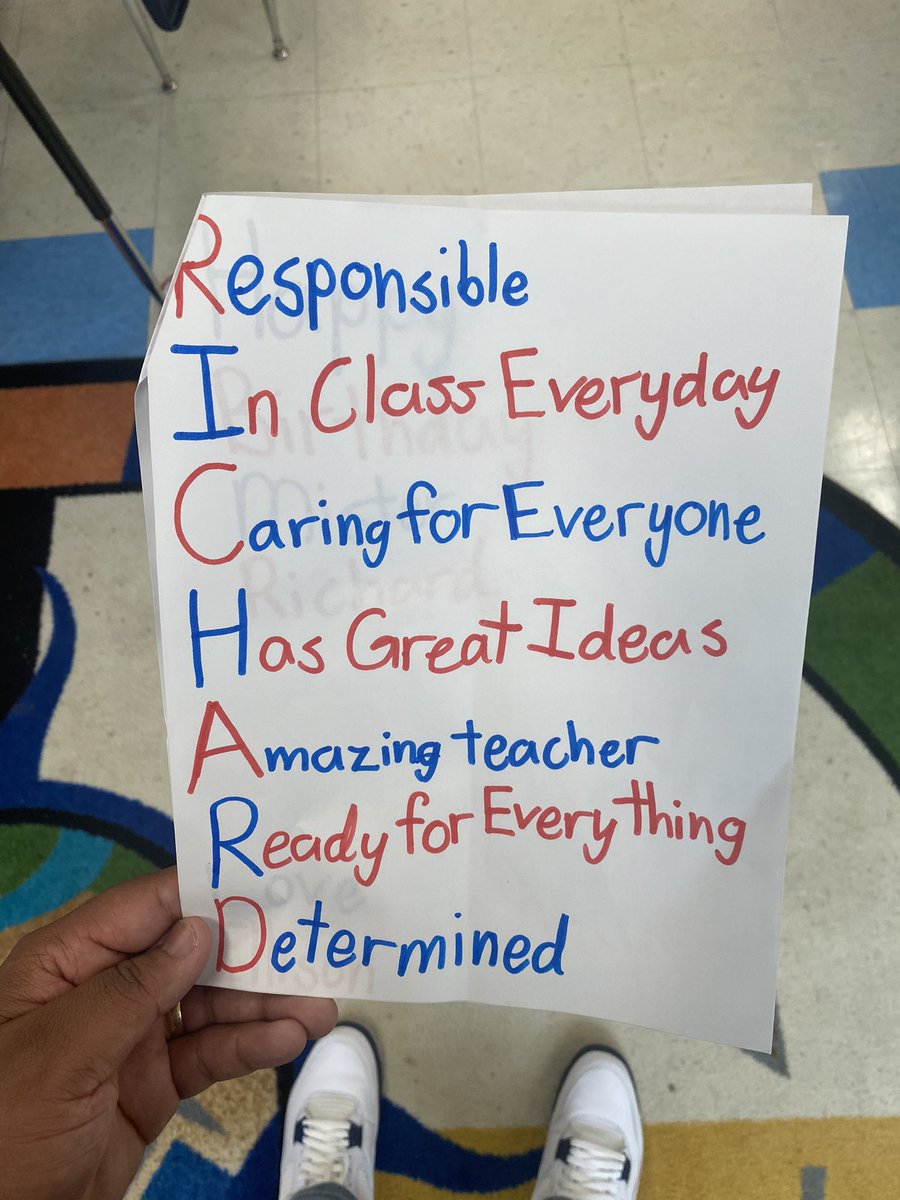 Responsible
In Class Everyday
Caring for Everyone
Has Great Ideas
Amazing teacher
Ready for Everything
Determined
Happy
Birthday
Richard
Love